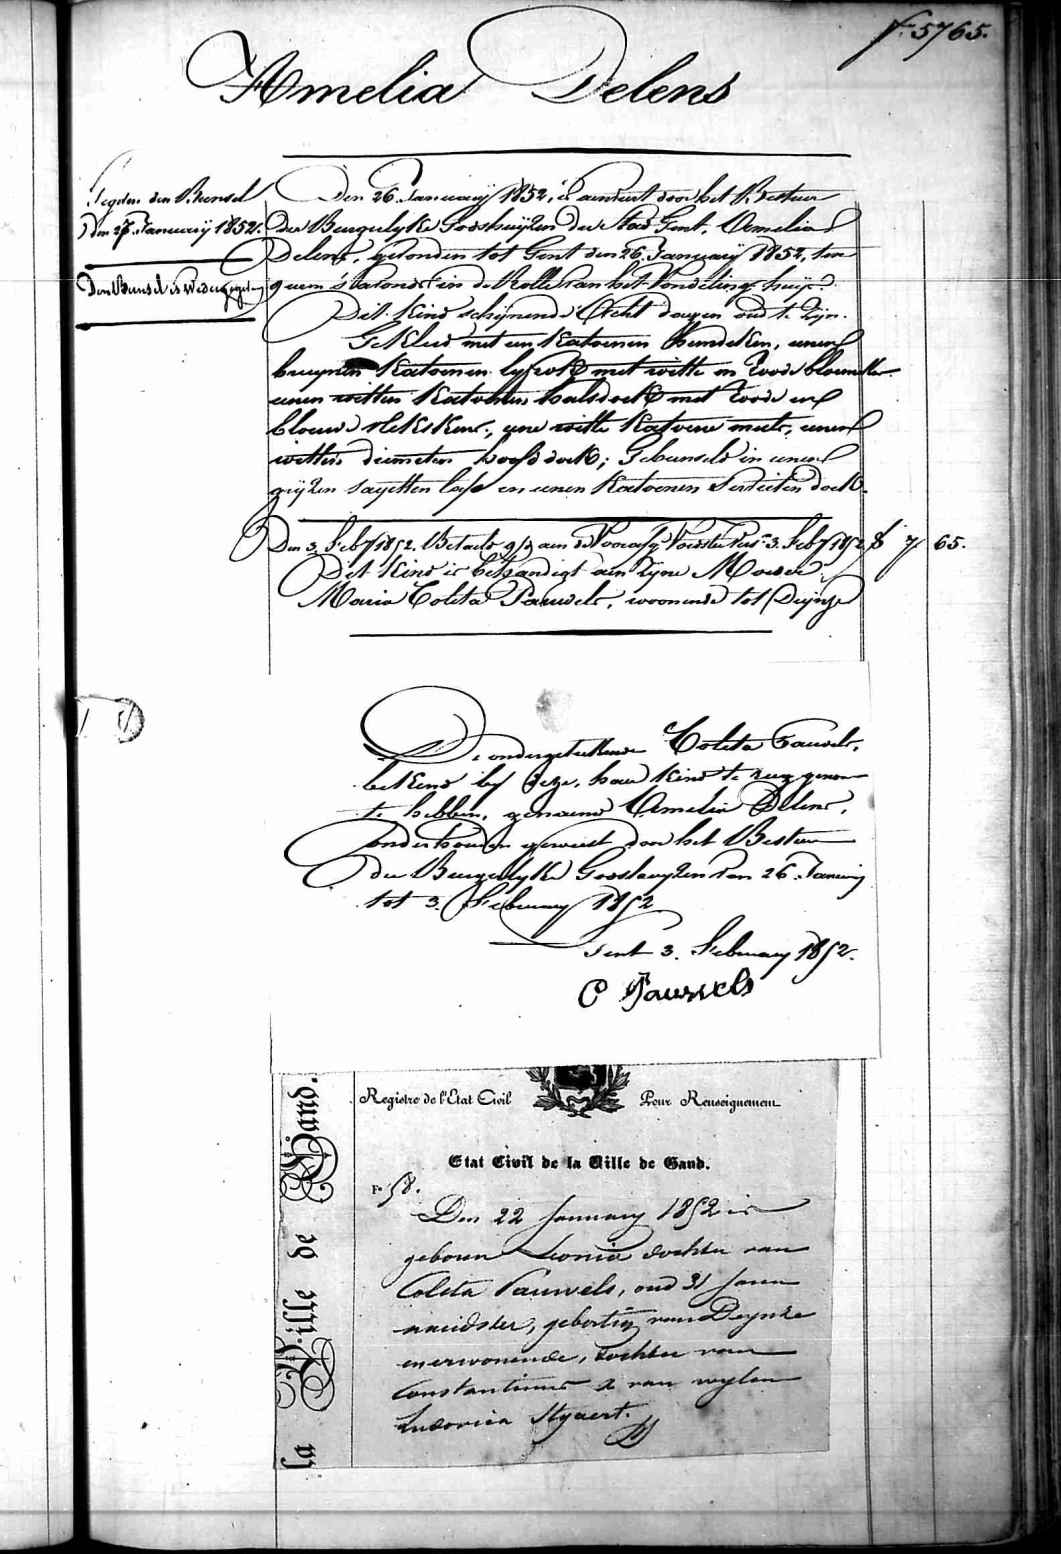 Nr. 5765.
Amelia Delens
Den 26 January 1852, is aenveert door het Bestuer
Der Burgerlyke Godshuyzen der Stad Gent, Amelia
Delens, gevonden tot Gent den 26 January 1852, ten
queen s'avonds in de Rolle van het Vondelingshuys.
Dit Kind schynende Acht dagen oud te Zyn.
Gekleed met een Katoenen Hemdeken, eenen
bruynen Katoenen lyfrok met witte en Roode bloemen
eenen witten Katoenen halsdoek met Roode en
blouwe Streksken, eene witte Katoene muts, eenen
witten diemeten hoofddoek; Gebunseld in eenen
gryzen sayetten en eenen Katoenen Servietin doek.
den Bunsel
Den 27 January 1852.
Den Bunsel is Wedergegeven
Den 3. Feby 1852. Betaeld aen de 3. Feby 1852 7 65.
Dit Kind is behandigt aen Zyne Moeder
Maria Coleta Pauwels, woonende tot Deynze
De ondergeteekende Coleta Pauwels,
bekend by deze, haer kind te rug genomen
te hebben, genaemd Amelia Delens,
onderhouden geweest door het Bestuer
der Burgerlyke Godshuyzen van 26 January
tot 3. February 1852
Gent 3. February 1852.
C Pauwels
la Ville de Gand.
Registre de l'Etat Civil Pour Renseignement
Etat Civil de la Ville de Gand.
Fo 58.
Den 22 January 1852 is
geboren Leonia dochter van
Coleta Pauwels, oud 31 jaren
naeidster, geboortig van Deynze
en er wonende, dochter van
Constantinus & van wylen
Ludovica Styaert.